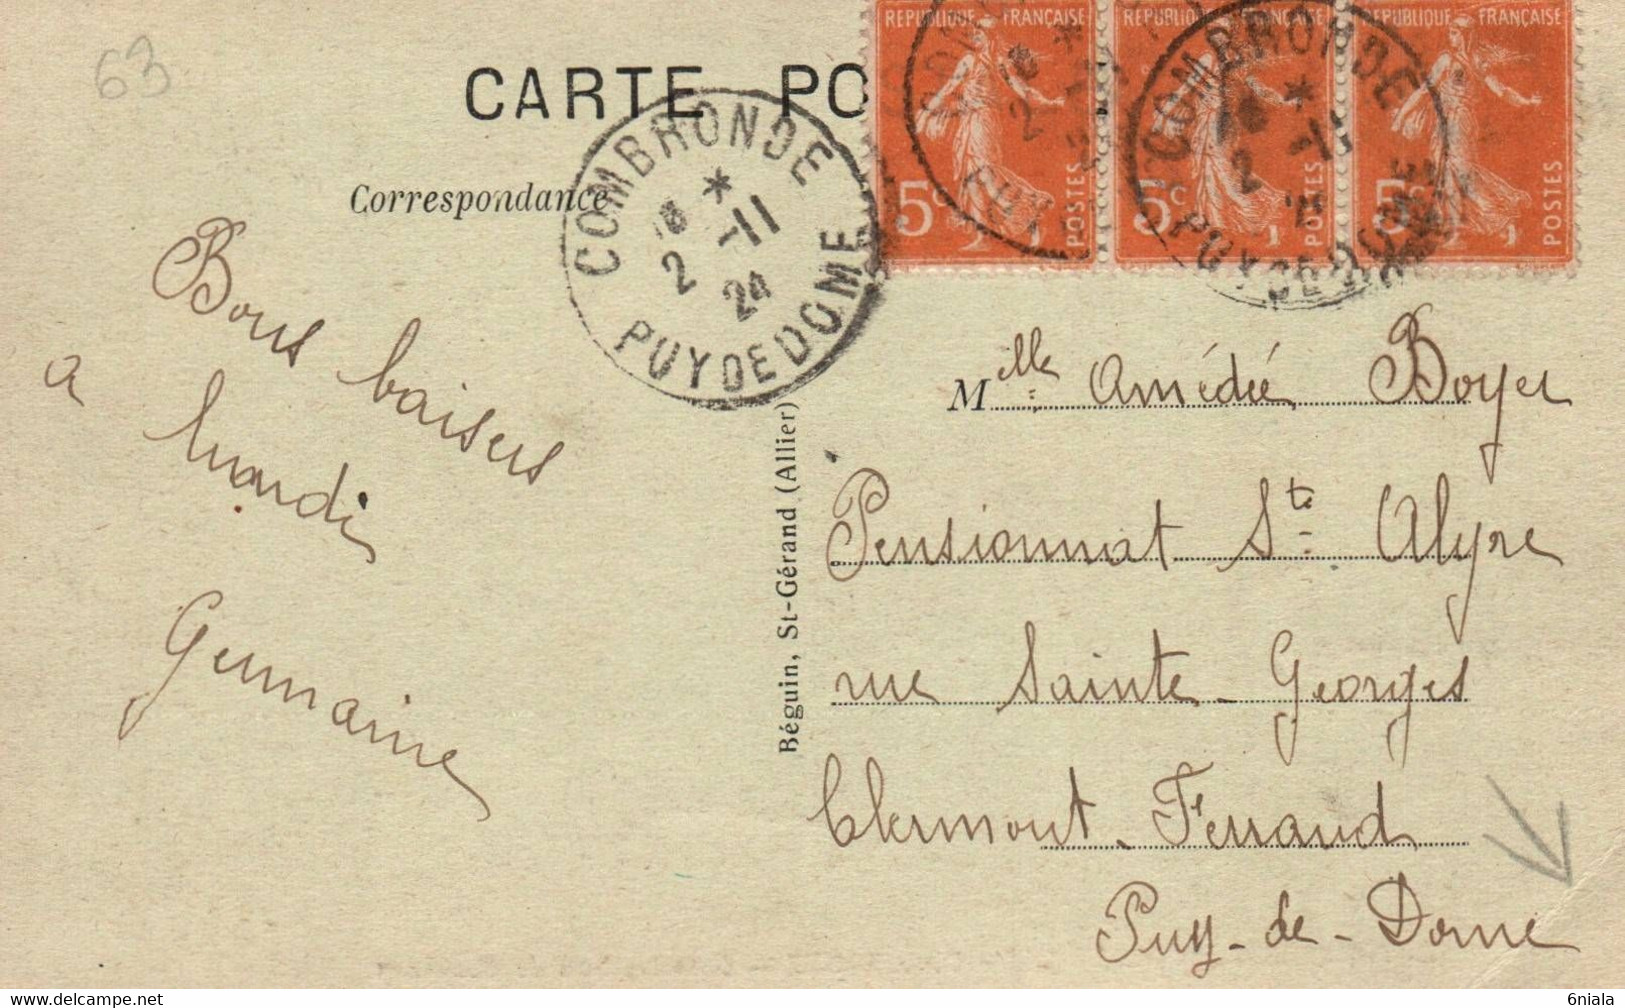 63
CARTE PO
REPUBLIQUE FRANÇAISE
REPUBLIQUE FRANÇAISE
REPUBLIQUE FRANÇAISE
5c POSTES
5c POSTES
5c POSTES
COMBRONDE
18 * 2 -11 24
PUY DE DOME
COMBRONDE
PUY DE DOME
Correspondance
Bons baisers
a mardi
Germaine
Béguin, St-Gérand (Allier)
Mlle Amédée Boyer
Pensionnat Ste Alyre
rue Sainte-Georges
Clermont-Ferrand
Puy-de-Dome
6niala